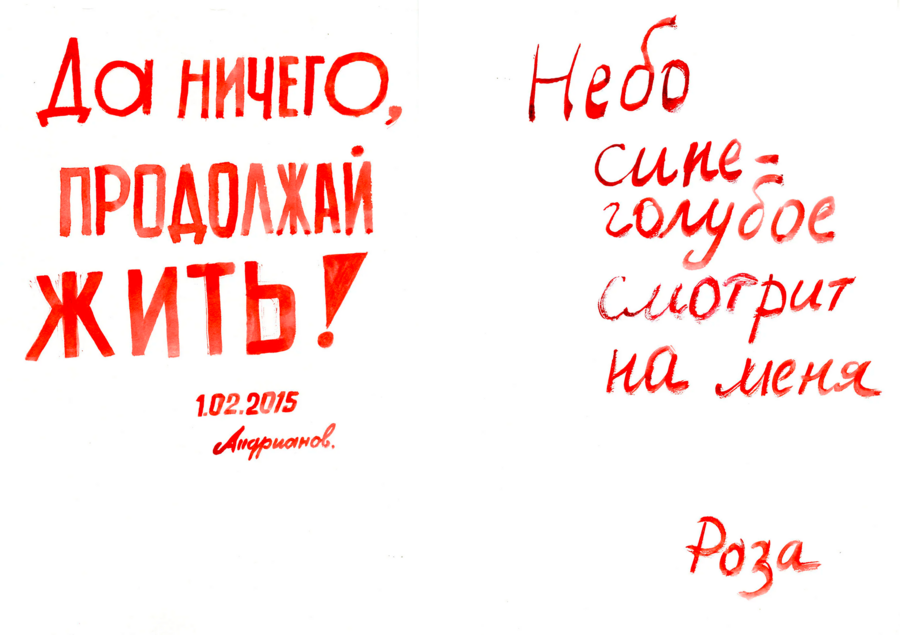 Да ничего,
ПРОДОЛЖАЙ
ЖИТЬ!
1.02.2015
Андрианов.
Небо
сине-
голубое
смотрит
на меня
Роза